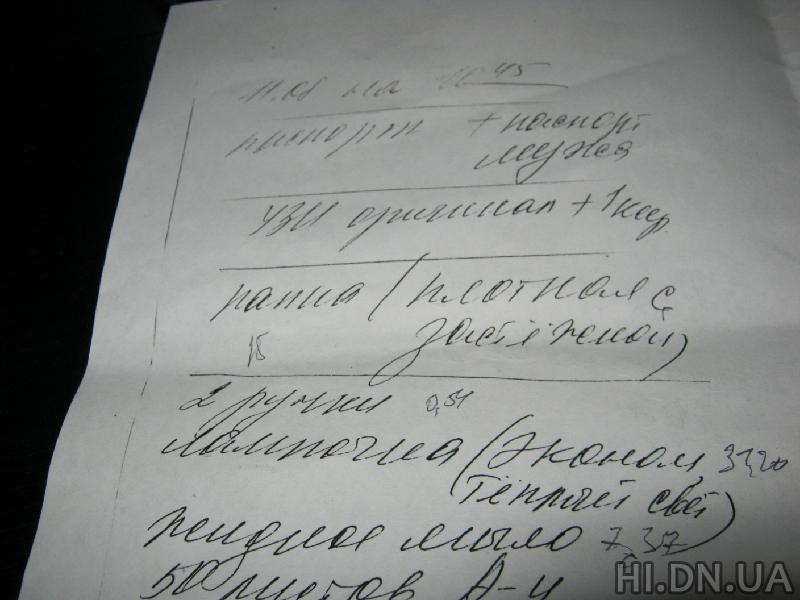 11.08 на 16 45
паспорт + паспорт
мужа
УЗИ оригинал + 1 кср
папка (плотная с
15 застёжкой)
2 ручки 0,54
лампочка (эконом, 31,20
тёплый свет)
жидкое мыло 7,37
500 листов А-4
HI.DN.UA